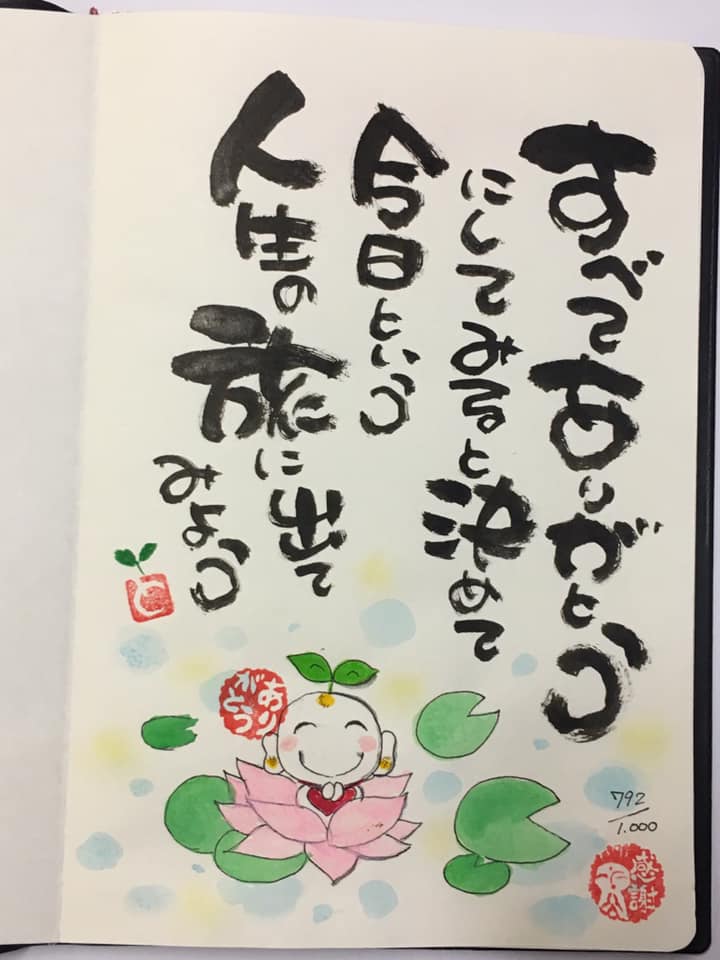 すべてありがとう
にしてみると決めて
今日という
人生の旅に出て
みよう
ありがとう
792/1.000
感謝